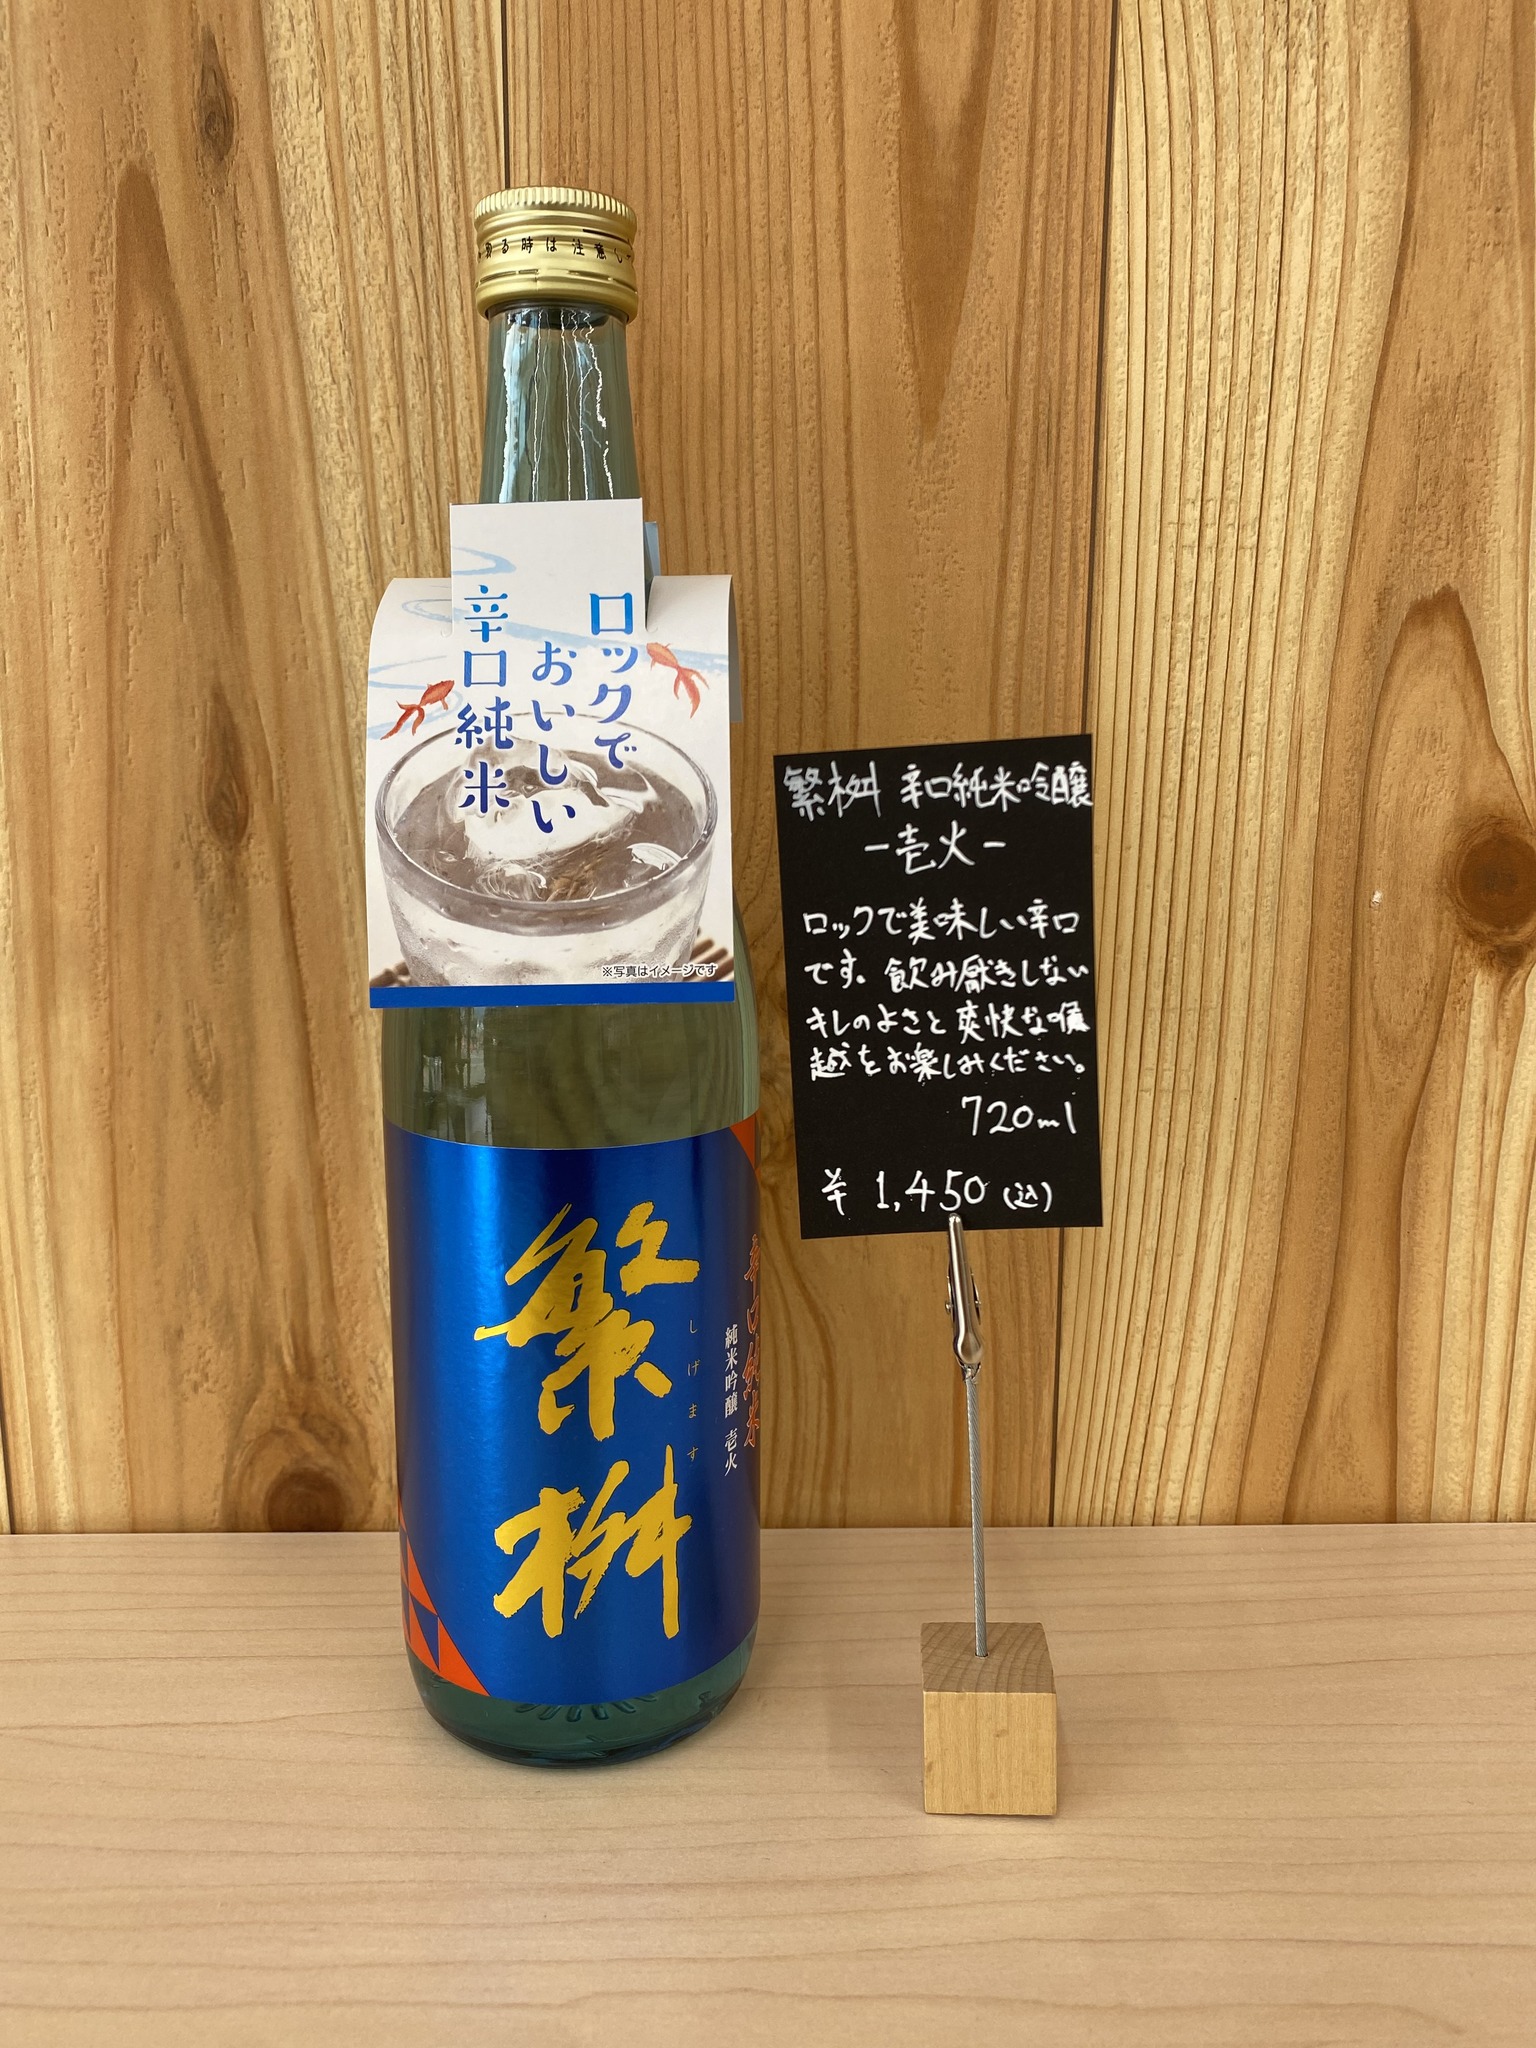 る時は注意し
ロックで
おいしい
辛口純米
※写真はイメージです
繁桝
しげます
辛口純米
純米吟醸 壱火
繁桝 辛口純米吟醸
-壱火-
ロックで美味しい辛口
です。飲み厭きしない
キレのよさと爽快な喉
越をお楽しみください。
720ml
¥1,450(込)